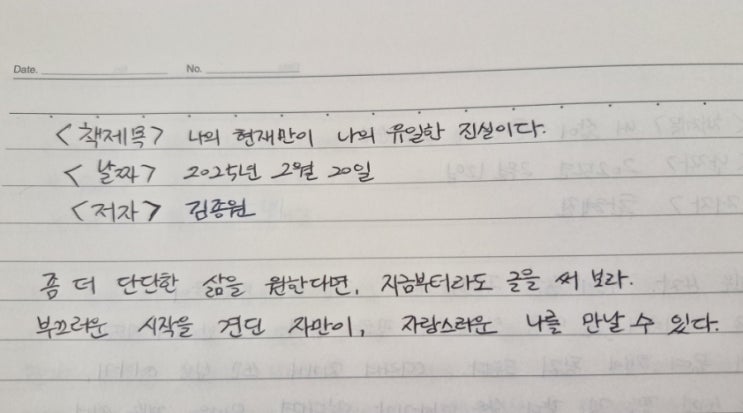 Date.
No.
<책제목> 나의 현재만이 나의 유일한 진실이다.
<날짜> 2025년 2월 20일
<저자> 김종원
좀 더 단단한 삶을 원한다면, 지금부터라도 글을 써 보라.
부끄러운 시작을 견딘 자만이, 자랑스러운 나를 만날 수 있다.